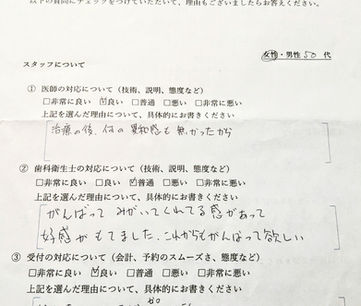 以下の質問にチェックをつけていただいて、理由もございましたらお答えください。
女性・男性 50 代
スタッフについて
① 医師の対応について（技術、説明、態度など）
□非常に良い ☑良い □普通 □悪い □非常に悪い
上記を選んだ理由について、具体的にお書きください
治療の後、何の異和感も無かったから
② 歯科衛生士の対応について（技術、説明、態度など）
□非常に良い □良い ☑普通 □悪い □非常に悪い
上記を選んだ理由について、具体的にお書きください
がんばって みがいてくれてる感があって
好感がもてました、これからもがんばって欲しい
③ 受付の対応について（会計、予約のスムーズさ、態度など）
□非常に良い ☑良い □普通 □悪い □非常に悪い
上記を選んだ理由について、具体的にお書きください